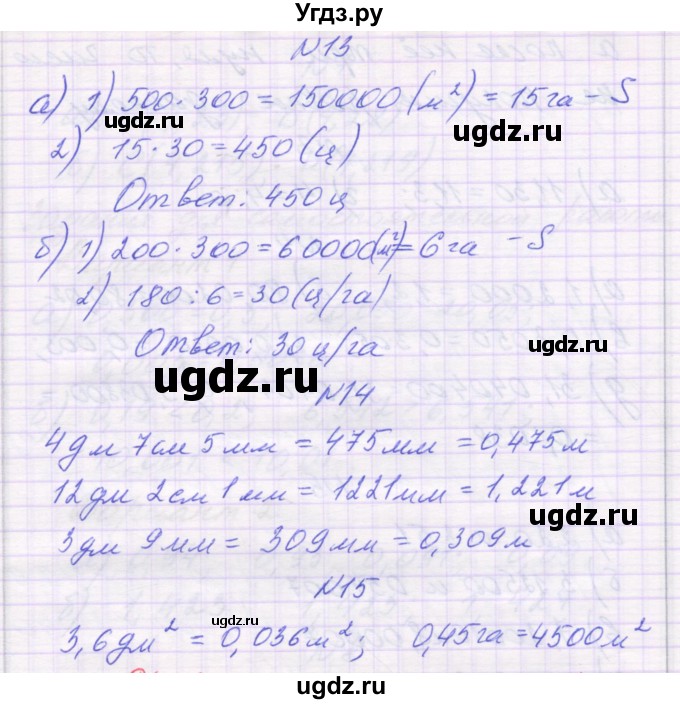 Угдз.ру
N13
а) 1) 500·300 = 150000 (м²) = 15 га – S
ugdz.ru ugdz.ru
2) 15·30 = 450 (ц)
Ответ: 450 ц
б) 1) 200·300 = 60000(м²) = 6 га – S
2) 180 : 6 = 30 (ц/га)
Ответ: 30 ц/га
ugdz.ru
ugdz.ru
N14
4дм 7см 5мм = 475мм = 0,475м
12дм 2см 1мм = 1221мм = 1,221м
ugdz.ru
3дм 9мм = 309мм = 0,309м
N15
ugdz.ru
3,6дм² = 0,036м²; 0,45га = 4500м²
ugdz.ru
ugdz.ru